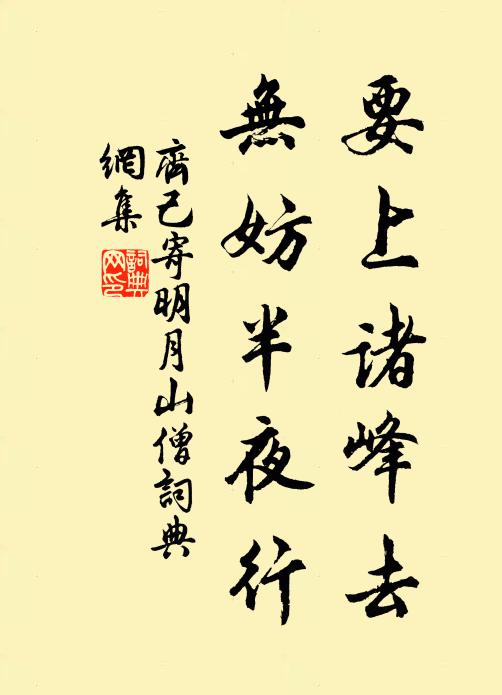 要上諸峰去
無妨半夜行
齊己寄明月山僧詞典
網集
詞典
网印